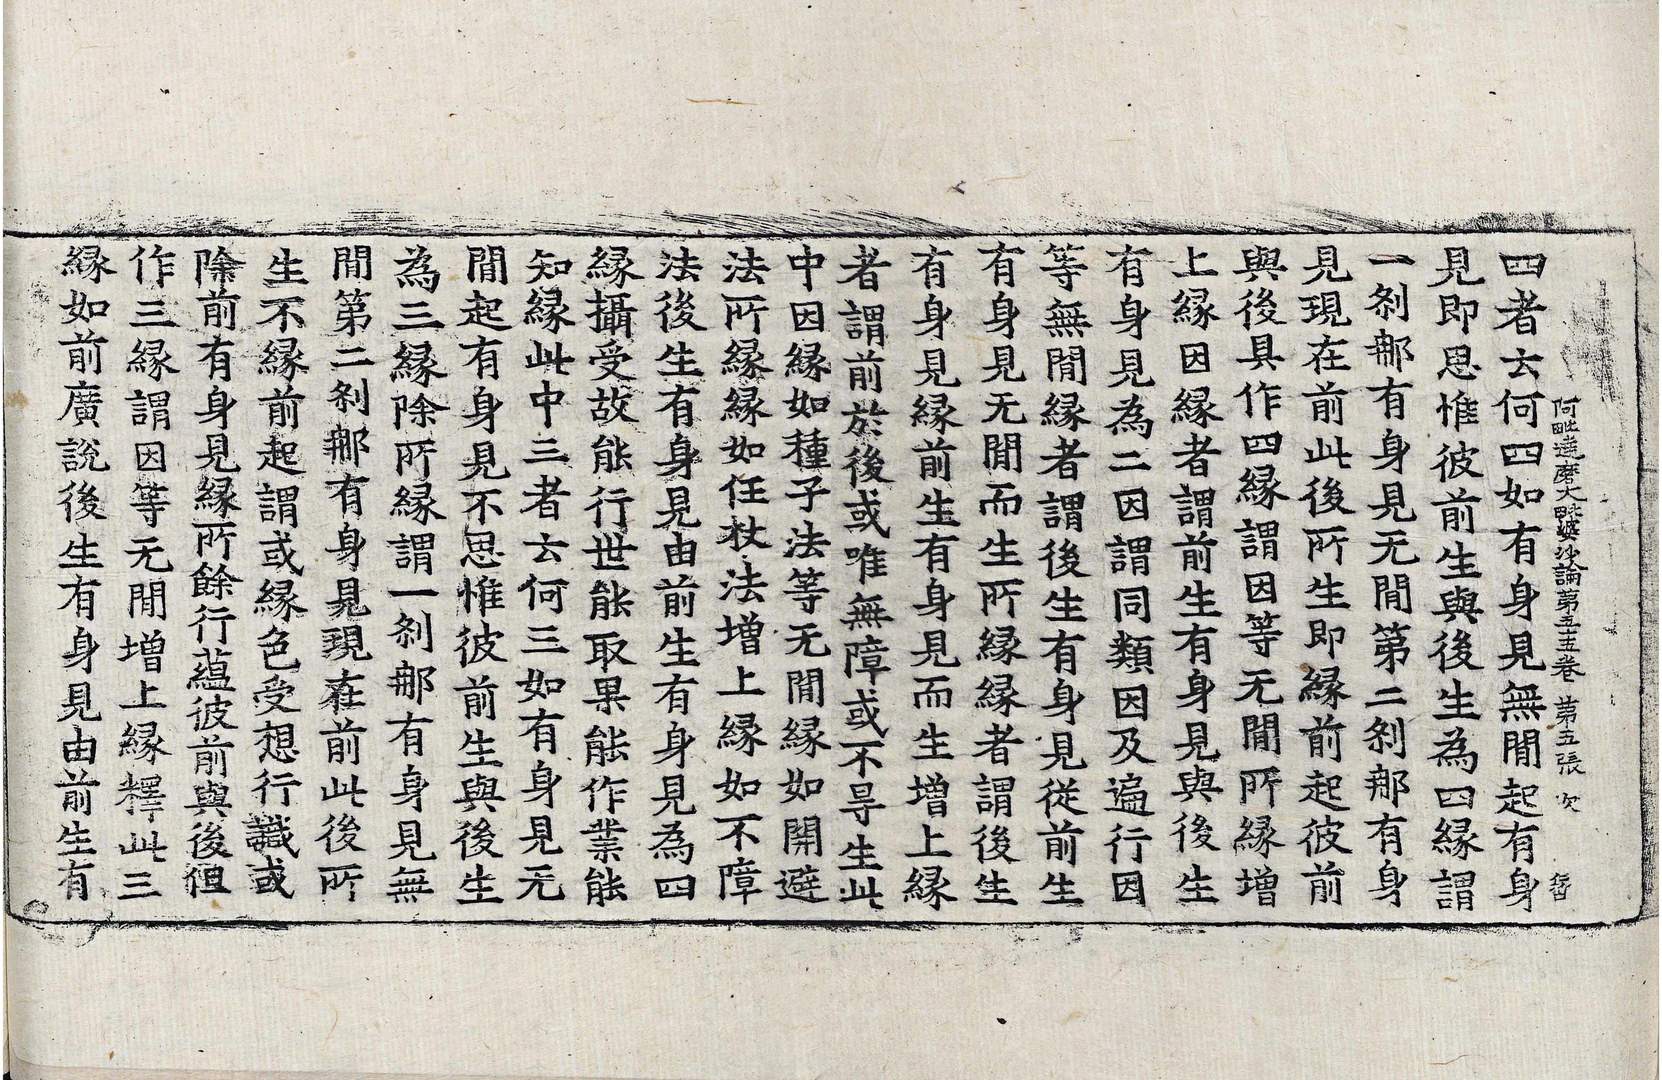 阿毗達磨大毗婆沙論第五十五卷　第五張　次
四者云何四如有身見無閒起有身
見即思惟彼前生與後生為四縁謂
一刹那有身見无閒第二刹那有身
見現在前此後所生即縁前起彼前
與後具作四縁謂因等无閒所縁增
上縁因縁者謂前生有身見與後生
有身見為二因謂同類因及遍行因
等無閒縁者謂後生有身見從前生
有身見无閒而生所縁縁者謂後生
有身見縁前生有身見而生增上縁
者謂前於後或唯無障或不㝵生此
中因縁如種子法等无閒縁如開避
法所縁縁如任杖法增上縁如不障
法後生有身見由前生有身見為四
縁攝受故能行世能取果能作業能
知縁此中三者云何三如有身見无
閒起有身見不思惟彼前生與後生
為三縁除所縁謂一刹那有身見無
閒第二刹那有身見現在前此後所
生不縁前起謂或縁色受想行識或
除前有身見縁所餘行蘊彼前與後但
作三縁謂因等无閒增上縁釋此三
縁如前廣說後生有身見由前生有